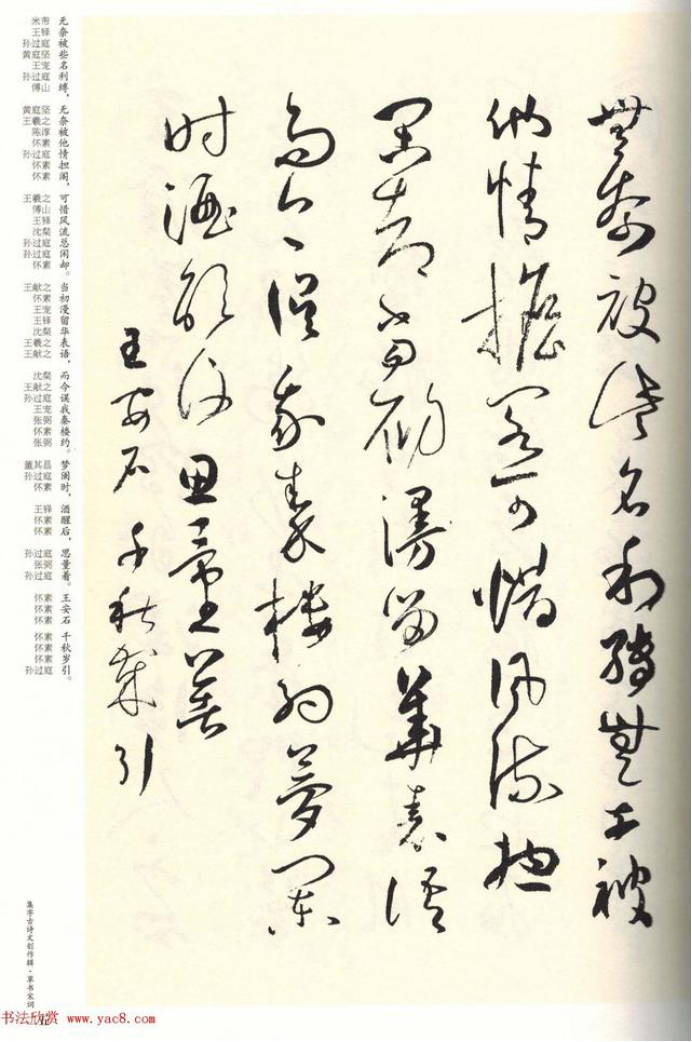 無奈被些名利縛無奈被
他情擔閣可惜風流總
閑却當初漫留華表語
而今誤我秦樓約夢闌
时酒醒後思量着
王安石千秋歲引
无奈被些名利缚，无奈被他情担阁，可惜风流总闲却。当初漫留华表语，而今误我秦楼约。梦阑时，酒醒后，思量着。王安石 千秋岁引。
米芾 王铎 孙过庭 黄庭坚 王宠 孙过庭 傅山 黄庭坚 王羲之 陈淳 怀素 孙过庭 怀素 怀素 王羲之 傅山 王铎 沈粲 孙过庭 孙过庭 怀素 王献之 怀素 王宠 王铎 沈粲 王羲之 王献之 沈粲 王献之 孙过庭 王宠 张弼 怀素 张弼 董其昌 孙过庭 怀素 王铎 怀素 怀素 孙过庭 张弼 孙过庭 怀素 怀素 怀素 怀素 怀素 怀素 孙过庭
集字古诗文创作辑·草书宋词
书法欣赏 www.yac8.com